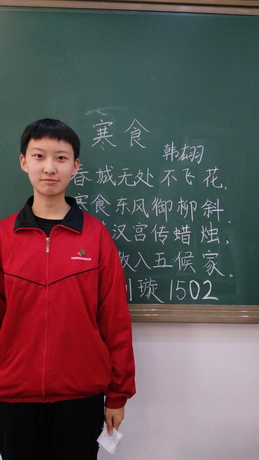 寒食
韩翃
春城无处不飞花.
寒食东风御柳斜.
汉宫传蜡烛,
散入五候家.
璇1502